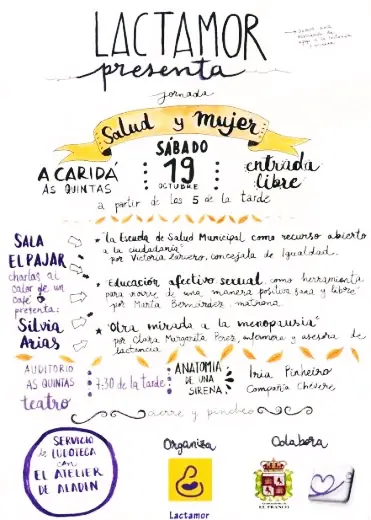 LACTAMOR
presenta
jornada
Salud y mujer
A CARIDÁ
AS QUINTAS
SÁBADO
19
OCTUBRE
entrada
libre
a partir de las 5 de la tarde
SALA
EL PAJAR
charlas al
calor de un
café
presenta:
Silvia
Arias
"La Escuela de Salud Municipal como recurso abierto
a la ciudadanía"
por Victoria concejala de Igualdad.
Educación afectivo sexual como herramienta
para de una manera positiva sana y libre"
por Marta Bermúdez. matrona
"Otra mirada a la menopausia"
por Clara Margarita Perez, enfermera y asesora de
lactancia
AUDITORIO
AS QUINTAS
teatro
7:30 de la tarde
ANATOMIA
DE UNA
SIRENA
Iria Pinheiro
Compañía Chévere
cierre y pincheo
SERVICIO
de LUDOTECA
con
EL ATELIER
DE ALADIN
Organiza
Lactamor
Colabora
EL FRANCO